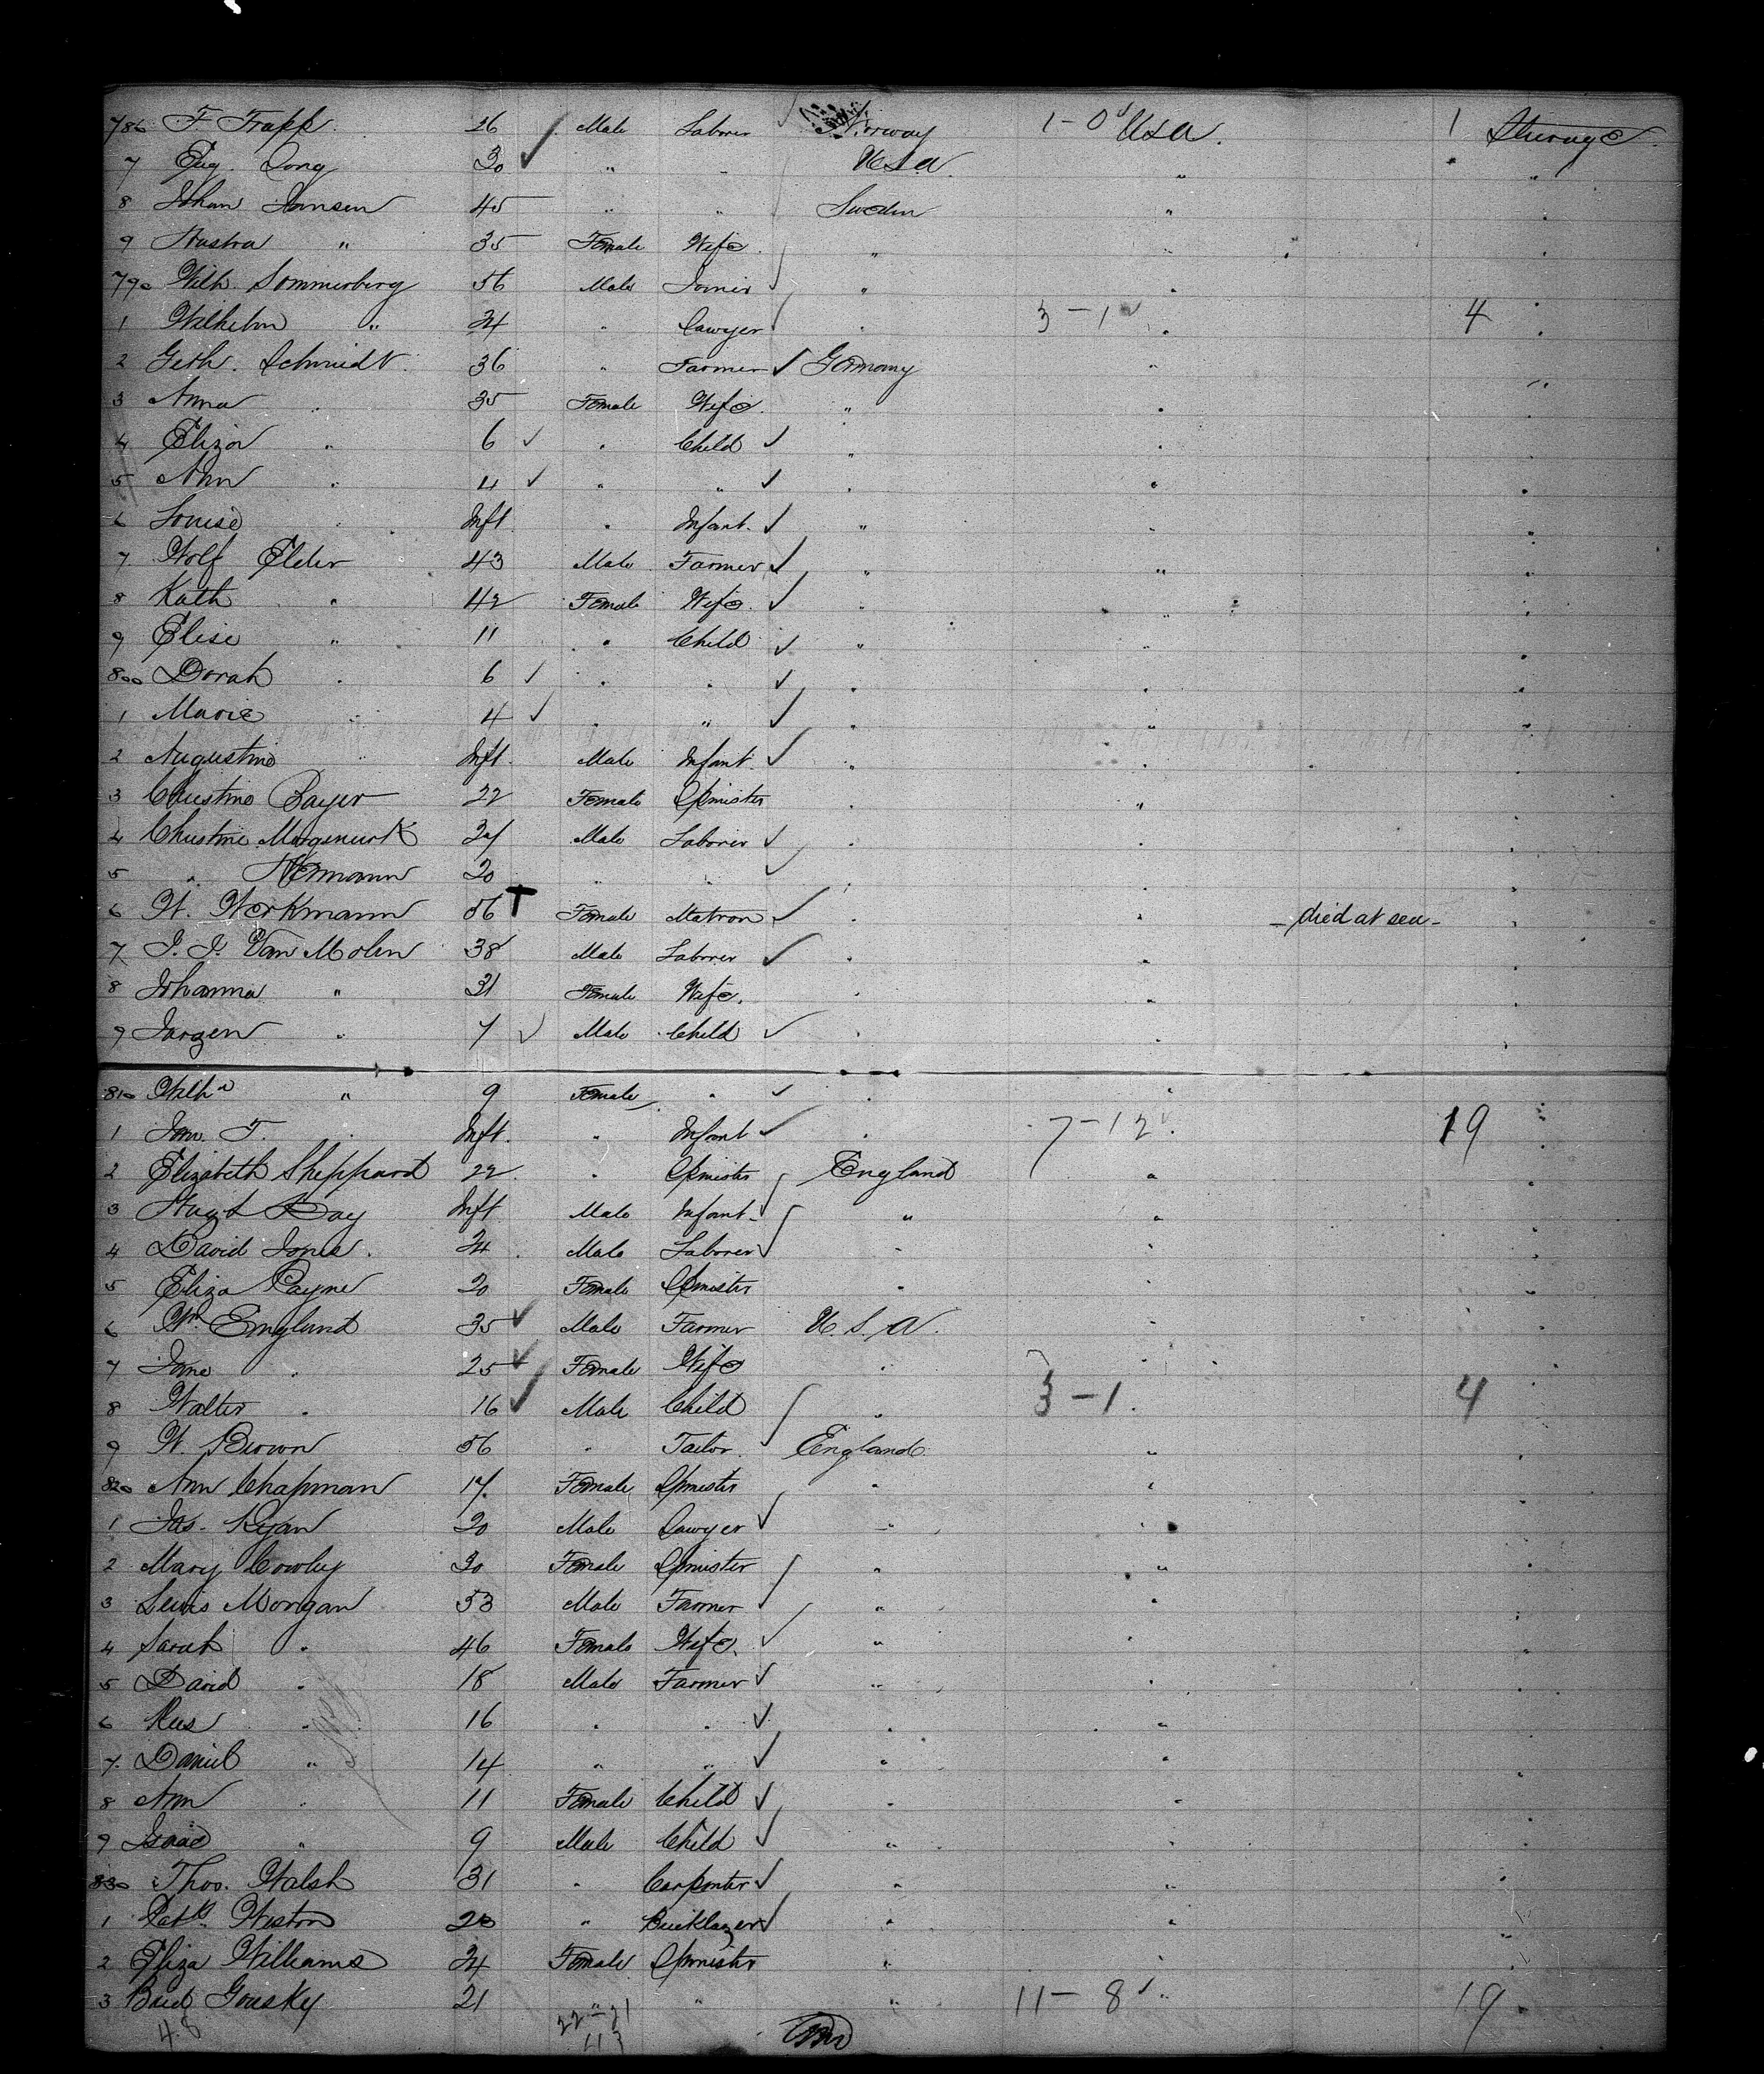 786 F Trapp 26 Male Laborer Norway 1-0 USA. 1 Steerage.
7 Eug. Long 30 " " USA. " "
8 Johan Jansen 45 " " Sweden " "
9 " 35 Female Wife " " "
790 Wilh. Sommerberg 56 Male Joiner " " "
1 Wilhelm " 24 " Sawyer " 3-1 " 4 "
2 Geth. Schmidt 36 " Farmer Germany " "
3 Anna " 35 Female Wife " " "
4 Eliza " 6 " Child " " "
5 Ann " 4 " " " " "
6 Louise " Inft. " Infant " " "
7 Wolf Elder 43 Male Farmer " " "
8 Kath " 42 Female Wife " " "
9 Elise " 11 " Child " " "
800 Dorah " 6 " " " " "
1 Marie " 4 " " " " "
2 Augustino " Inft. Male Infant " " "
3 Christine Bayer 22 Female Spinster " " "
4 Christine Male Laborer " " "
5 " Hermann 20 " " " " "
6 W. Workmann 56 T Female Matron " " - died at sea - "
7 J. J. Van Molen 38 Male Laborer " " "
8 Johanna " 31 Female Wife. " " "
9 Jurgen " 7 Male Child " " "
810 Wilh a " 9 Female " " " "
1 Jan. T. " Inft. " Infant " 7-12 19 "
2 Elizabeth Sheppard 22 " Spinster England " "
3 Day Inft Male Infant " " "
4 David Jones. 24 Male Laborer " " "
5 Eliza Payne 20 Female Spinster " " "
6 Wm England 35 Male Farmer U.S.A. " "
7 Jane " 25 Female Wife " " "
8 Walter " 16 Male Child " 3-1. 4
9 W. Brown 56 " Tailor. England " "
820 Ann Chapman 17. Female Spinster " " "
1 Jas. Ryan 20 Male Sawyer " " "
2 Mary Cowley 30 Female Spinster " " "
3 Lewis Morgan 53 Male Farmer " " "
4 Sarah " 46 Female Wife. " " "
5 David " 18 Male Farmer " " "
6 Rees " 16 " " " " "
7 Daniel " 14 " " " " "
8 Ann " 11 Female Child " " "
9 Isaac " 9 Male Child " " "
830 Thos. Walsh 31 " Carpenter " " "
1 Patk. Weston 20 " Bricklayer " " "
2 Eliza Williams 24 Female Spinster " " "
3 Brid Gousky 21 " " " 11-8 " 19 "
48 22-21